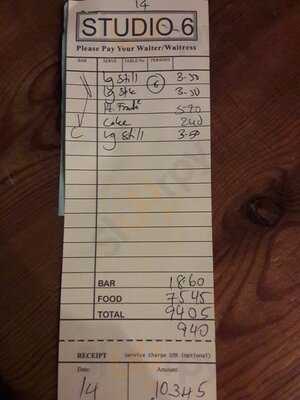 14
STUDIO 6
Please Pay Your Waiter/Waitress
BAR SERVE TABLE No PERSONS
lg Still 6 3.50
lg Still 3.50
570
Cake 240
lg Still 3.50
BAR 18.60
FOOD 7545
TOTAL 9405
940
RECEIPT Service Charge 10% (optional)
Date: Amount:
14 10345